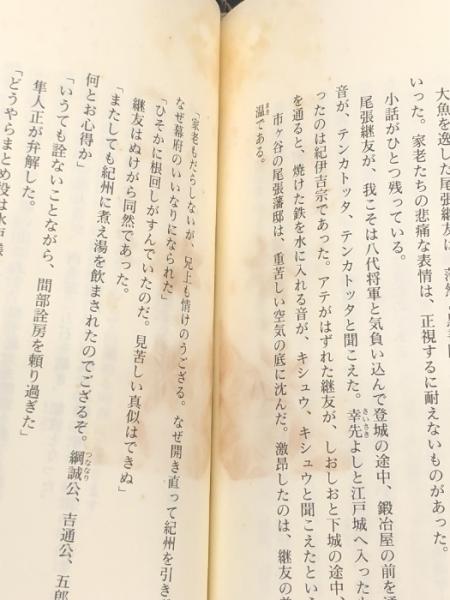 大魚を逸した尾張
いった。家老たちの悲痛な表情は、正視するに耐えないものがあった。
小話がひとつ残っている。
尾張継友が、我こそは八代将軍と気負い込んで登城の途中、鍛冶屋の前を通
音が、テンカトッタ、テンカトッタと聞こえた。幸先よしと江戸城へ入った
さいさき
ったのは紀伊吉宗であった。アテがはずれた継友が、しおしおと下城の途中、
を通ると、焼けた鉄を水に入れる音が、キシュウ、キシュウと聞こえたという
市ヶ谷の尾張藩邸は、重苦しい空気の底に沈んだ。激昂したのは、継友の
温である。
「家老もだらしないが、兄上も情けのうござる。なぜ開き直って紀州を引き
なぜ幕府のいいなりになられた」
「ひそかに根回しがすんでいたのだ。見苦しい真似はできぬ」
継友はぬけがら同然であった。
「またしても紀州に煮え湯を飲まされたのでござるぞ。綱誠公、吉通公、五郎
つななり
何とお心得か」
「いうても詮ないことながら、間部詮房を頼り過ぎた」
隼人正が弁解した。
「どうやらまとめ役は水戸様